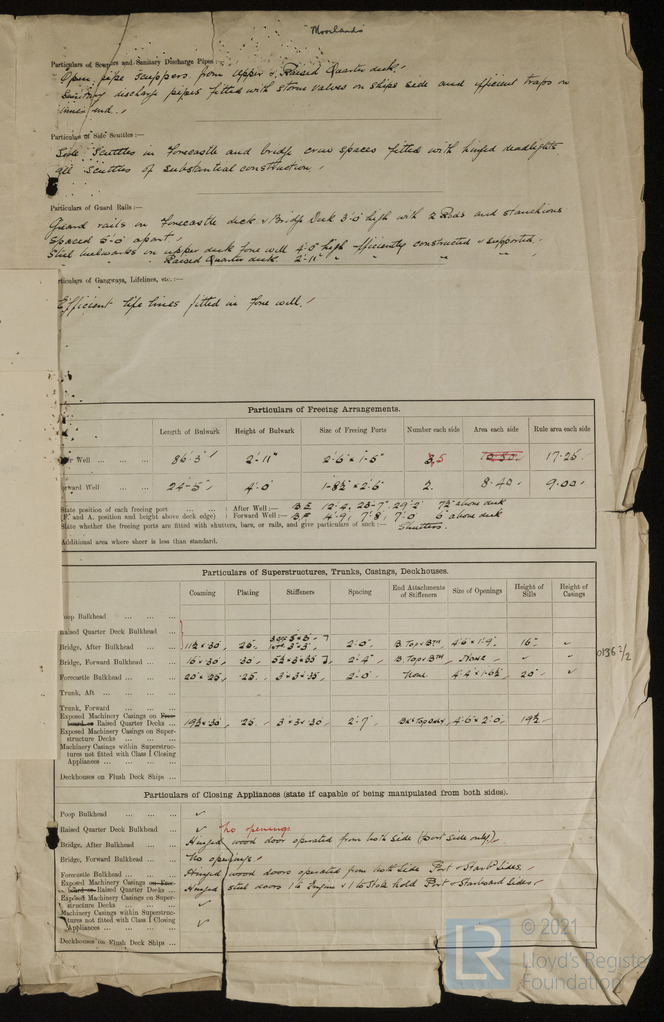 Moorlands
Particulars of Scuppers and Sanitary Discharge Pipes :—
Open pipe scuppers from Upper & Raised Quarter deck.
Sanitary discharge pipes fitted with storm valves on ships side and efficient traps on
inner end.
Particulars of Side Scuttles:—
Side Scuttles in Forecastle and bridge crew spaces fitted with hinged deadlights
all scuttles of substantial construction.
Particulars of Guard Rails:—
Guard rails on Forecastle deck & Bridge Deck 3'-0 high with 2 Rods and stanchions
spaced 5'-0 apart.
Steel bulwarks on upper deck Fore well 4'-0" high efficiently constructed & supported.
Raised Quarter deck 2'-11" " " "
rticulars of Gangways, Lifelines, etc.:—
Efficient life lines fitted in Fore well.
Particulars of Freeing Arrangements.
Length of Bulwark Height of Bulwark Size of Freeing Ports Number each side Area each side Rule area each side
er Well 86'-3" 2'-11" 2'-6" x 1'-5" 5 17.25
rward Well 24'-5" 4'-0" 1'-8½" x 2'-6" 2 8.40 9.00
State position of each freeing port After Well:— 7½" above deck
(F. and A. position and height above deck edge) Forward Well:— 4'-9", 7'-8", 7'-0" 6" above deck
State whether the freeing ports are fitted with shutters, bars, or rails, and give particulars of such:— Shutters.
Additional area where sheer is less than standard.
Particulars of Superstructures, Trunks, Casings, Deckhouses.
Coaming Plating Stiffeners Spacing End Attachments of Stiffeners Size of Openings Height of Sills Height of Casings
oop Bulkhead ... ... ...
Raised Quarter Deck Bulkhead ...
Bridge, After Bulkhead ... ... .25 2'-0" B. Top & Btm 4'-6" x 1'-9" 16" ✓
Bridge, Forward Bulkhead ... .30 2'-4" B. Top & Btm None ✓ ✓
Forecastle Bulkhead ... ... .25 3" x 3" x .35 2'-0" None 20" ✓
Trunk, Aft ... ... ...
Trunk, Forward ... ... ...
Exposed Machinery Casings on Fore-
castle or Raised Quarter Decks ... 19½ x 30 .25 3" x 3" x .30 2'-7" 4'-6" x 2'-0" 19½"
Exposed Machinery Casings on Super-
structure Decks ... ... ...
Machinery Casings within Superstruc-
tures not fitted with Class I Closing
Appliances ... ... ...
Deckhouses on Flush Deck Ships ...
Particulars of Closing Appliances (state if capable of being manipulated from both sides).
Poop Bulkhead ... ... ... ✓
Raised Quarter Deck Bulkhead ... ✓ No openings
Bridge, After Bulkhead ... ... Hinged wood door operated from both side (port side only)
Bridge, Forward Bulkhead ... No openings
Forecastle Bulkhead ... ... Hinged wood doors operated from both side Port & Starb Sides.
Exposed Machinery Casings on Fore-
castle or Raised Quarter Decks ... Hinged steel doors 1 to Engine & 1 to Stoke hold Port & Starboard Sides
Exposed Machinery Casings on Super-
structure Decks ... ... ... ✓
Machinery Casings within Superstruc-
tures not fitted with Class I Closing
Appliances ... ... ... ✓
Deckhouses on Flush Deck Ships ...
LR
© 2021
Lloyd's Registe
Foundation